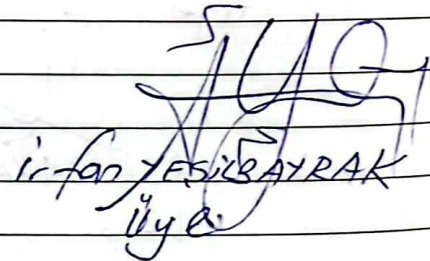 irfan YEŞİLBAYRAK
üye